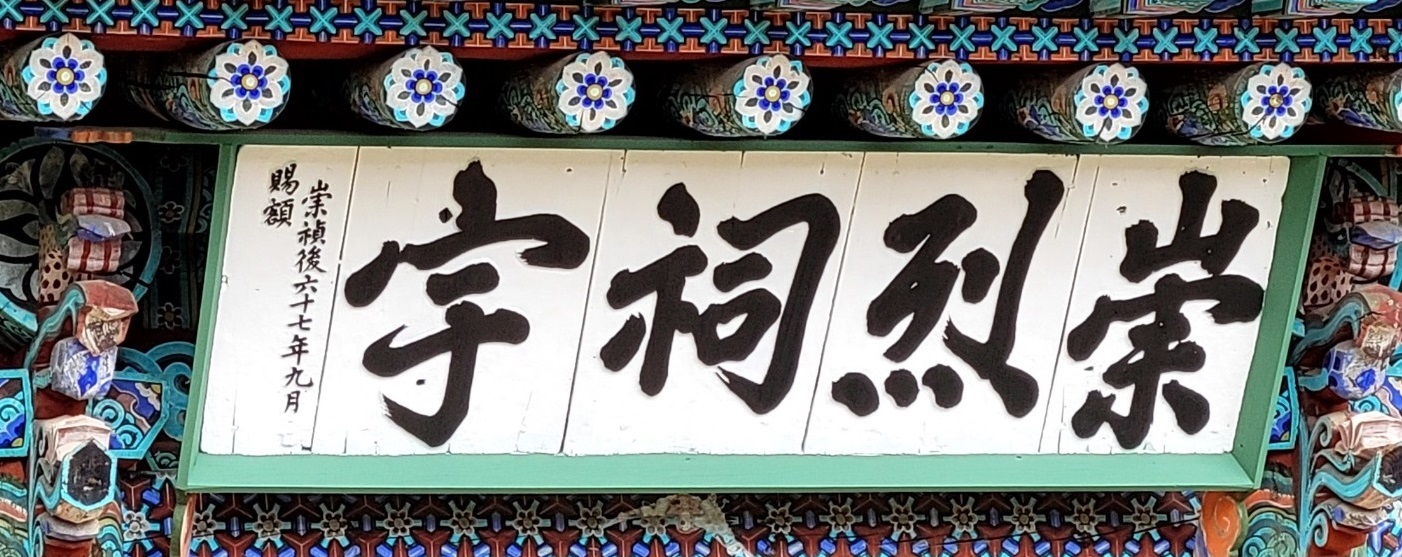 崇烈祠宇
崇禎後六十七年九月
賜額